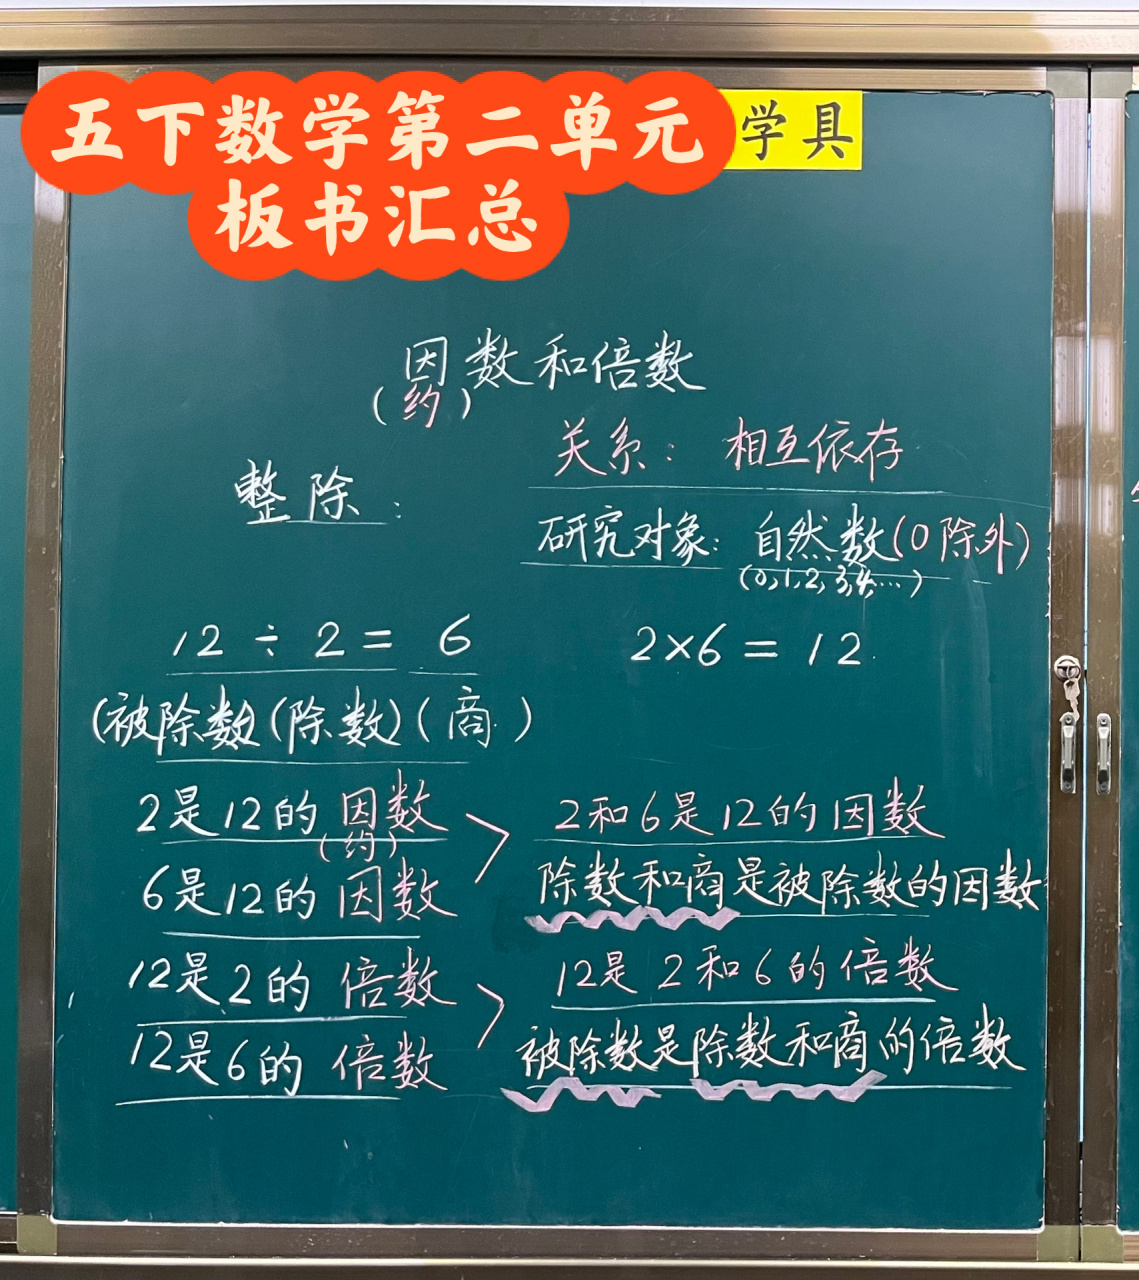 五下数学第二单元
板书汇总
学具
因数和倍数
(约)
关系：相互依存
整除：
研究对象：自然数(0除外)
(0,1,2,3,4,…)
12÷2=6
2×6=12
(被除数)(除数)(商)
2是12的因数
(约)
2和6是12的因数
6是12的因数
除数和商是被除数的因数
12是2的倍数
12是2和6的倍数
12是6的倍数
被除数是除数和商的倍数